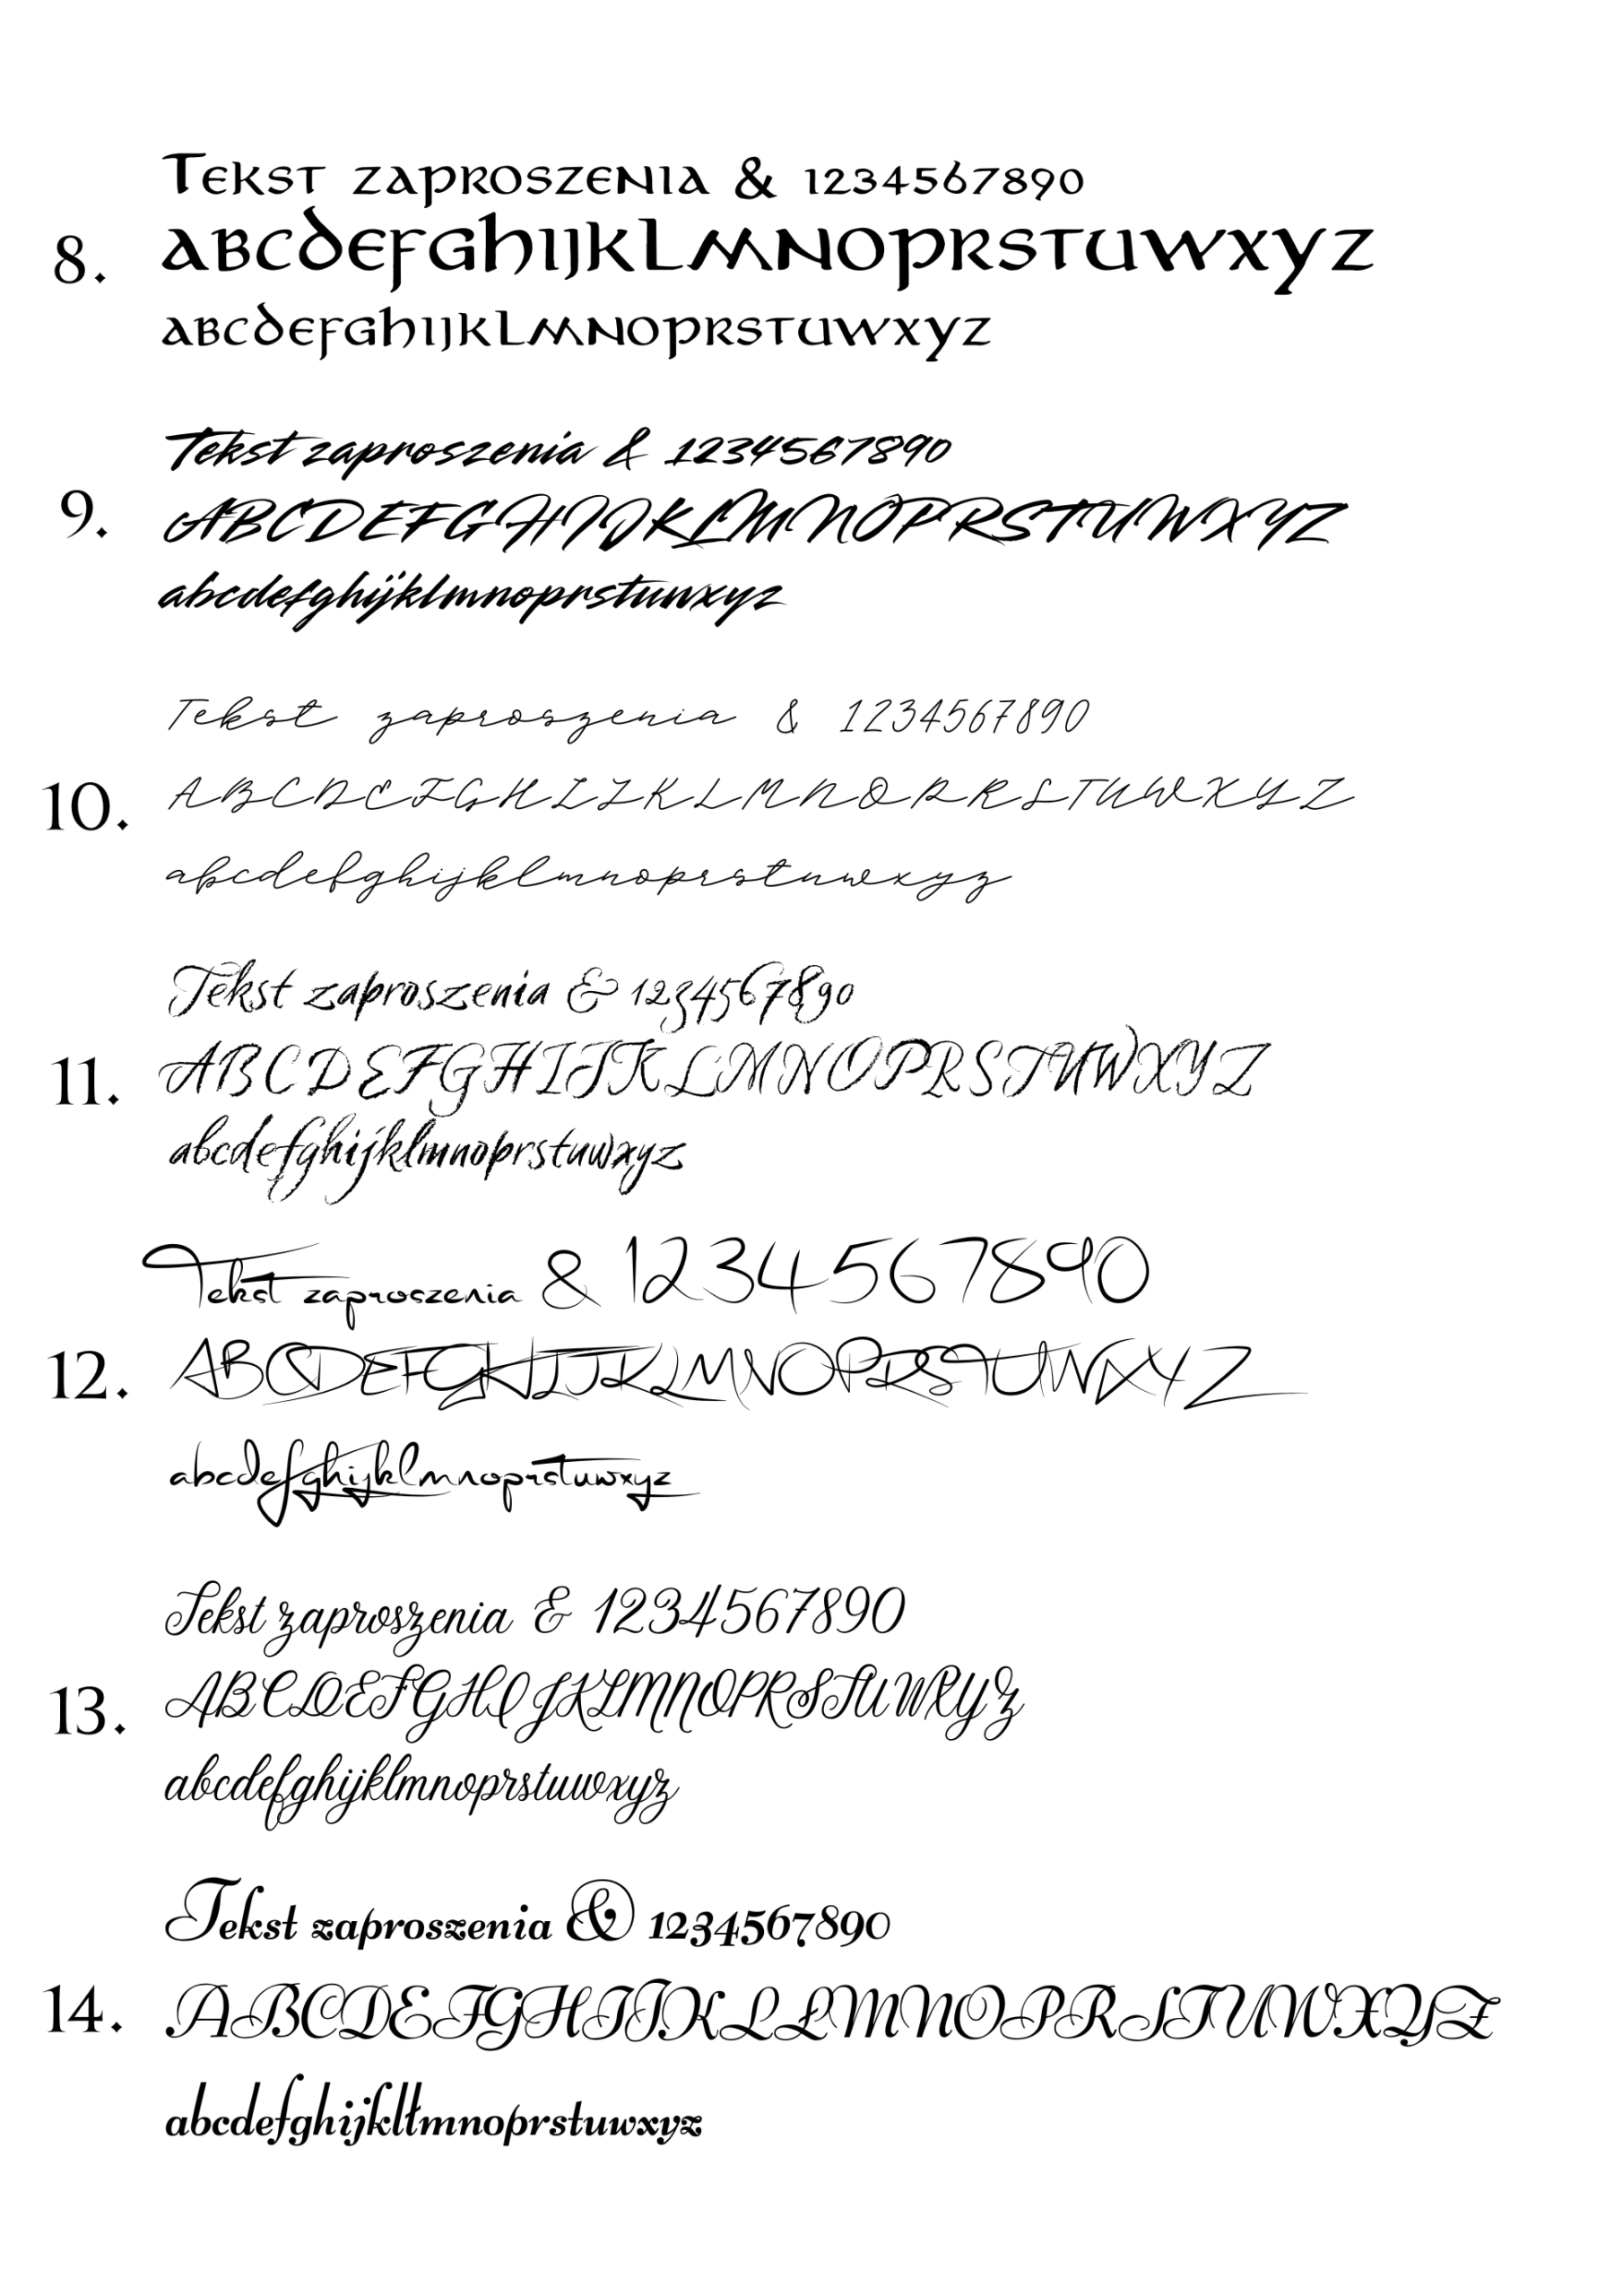 Tekst zaproszenia & 1234567890
8. ABCDEFGHIJKLMNOPRSTUWXYZ
abcdefghijklmnoprstuwxyz
Tekst zaproszenia & 1234567890
9. ABCDEFGHIJKLMNOPRSTUWXYZ
abcdefghijklmnoprstuwxyz
Tekst zaproszenia & 1234567890
10. ABCDEFGHIJKLMNOPRSTUWXYZ
abcdefghijklmnoprstuwxyz
Tekst zaproszenia & 1234567890
11. ABCDEFGHIJKLMNOPRSTUWXYZ
abcdefghijklmnoprstuwxyz
Tekst zaproszenia & 1234567890
12. ABCDEFGHIJKLMNOPRSTUWXYZ
abcdefghijklmnoprstuwxyz
Tekst zaproszenia & 1234567890
13. ABCDEFGHIJKLMNOPRSTUWXYZ
abcdefghijklmnoprstuwxyz
Tekst zaproszenia & 1234567890
14. ABCDEFGHIJKLŁMNOPRSTUWXYZ
abcdefghijklłmnoprstuwxyz